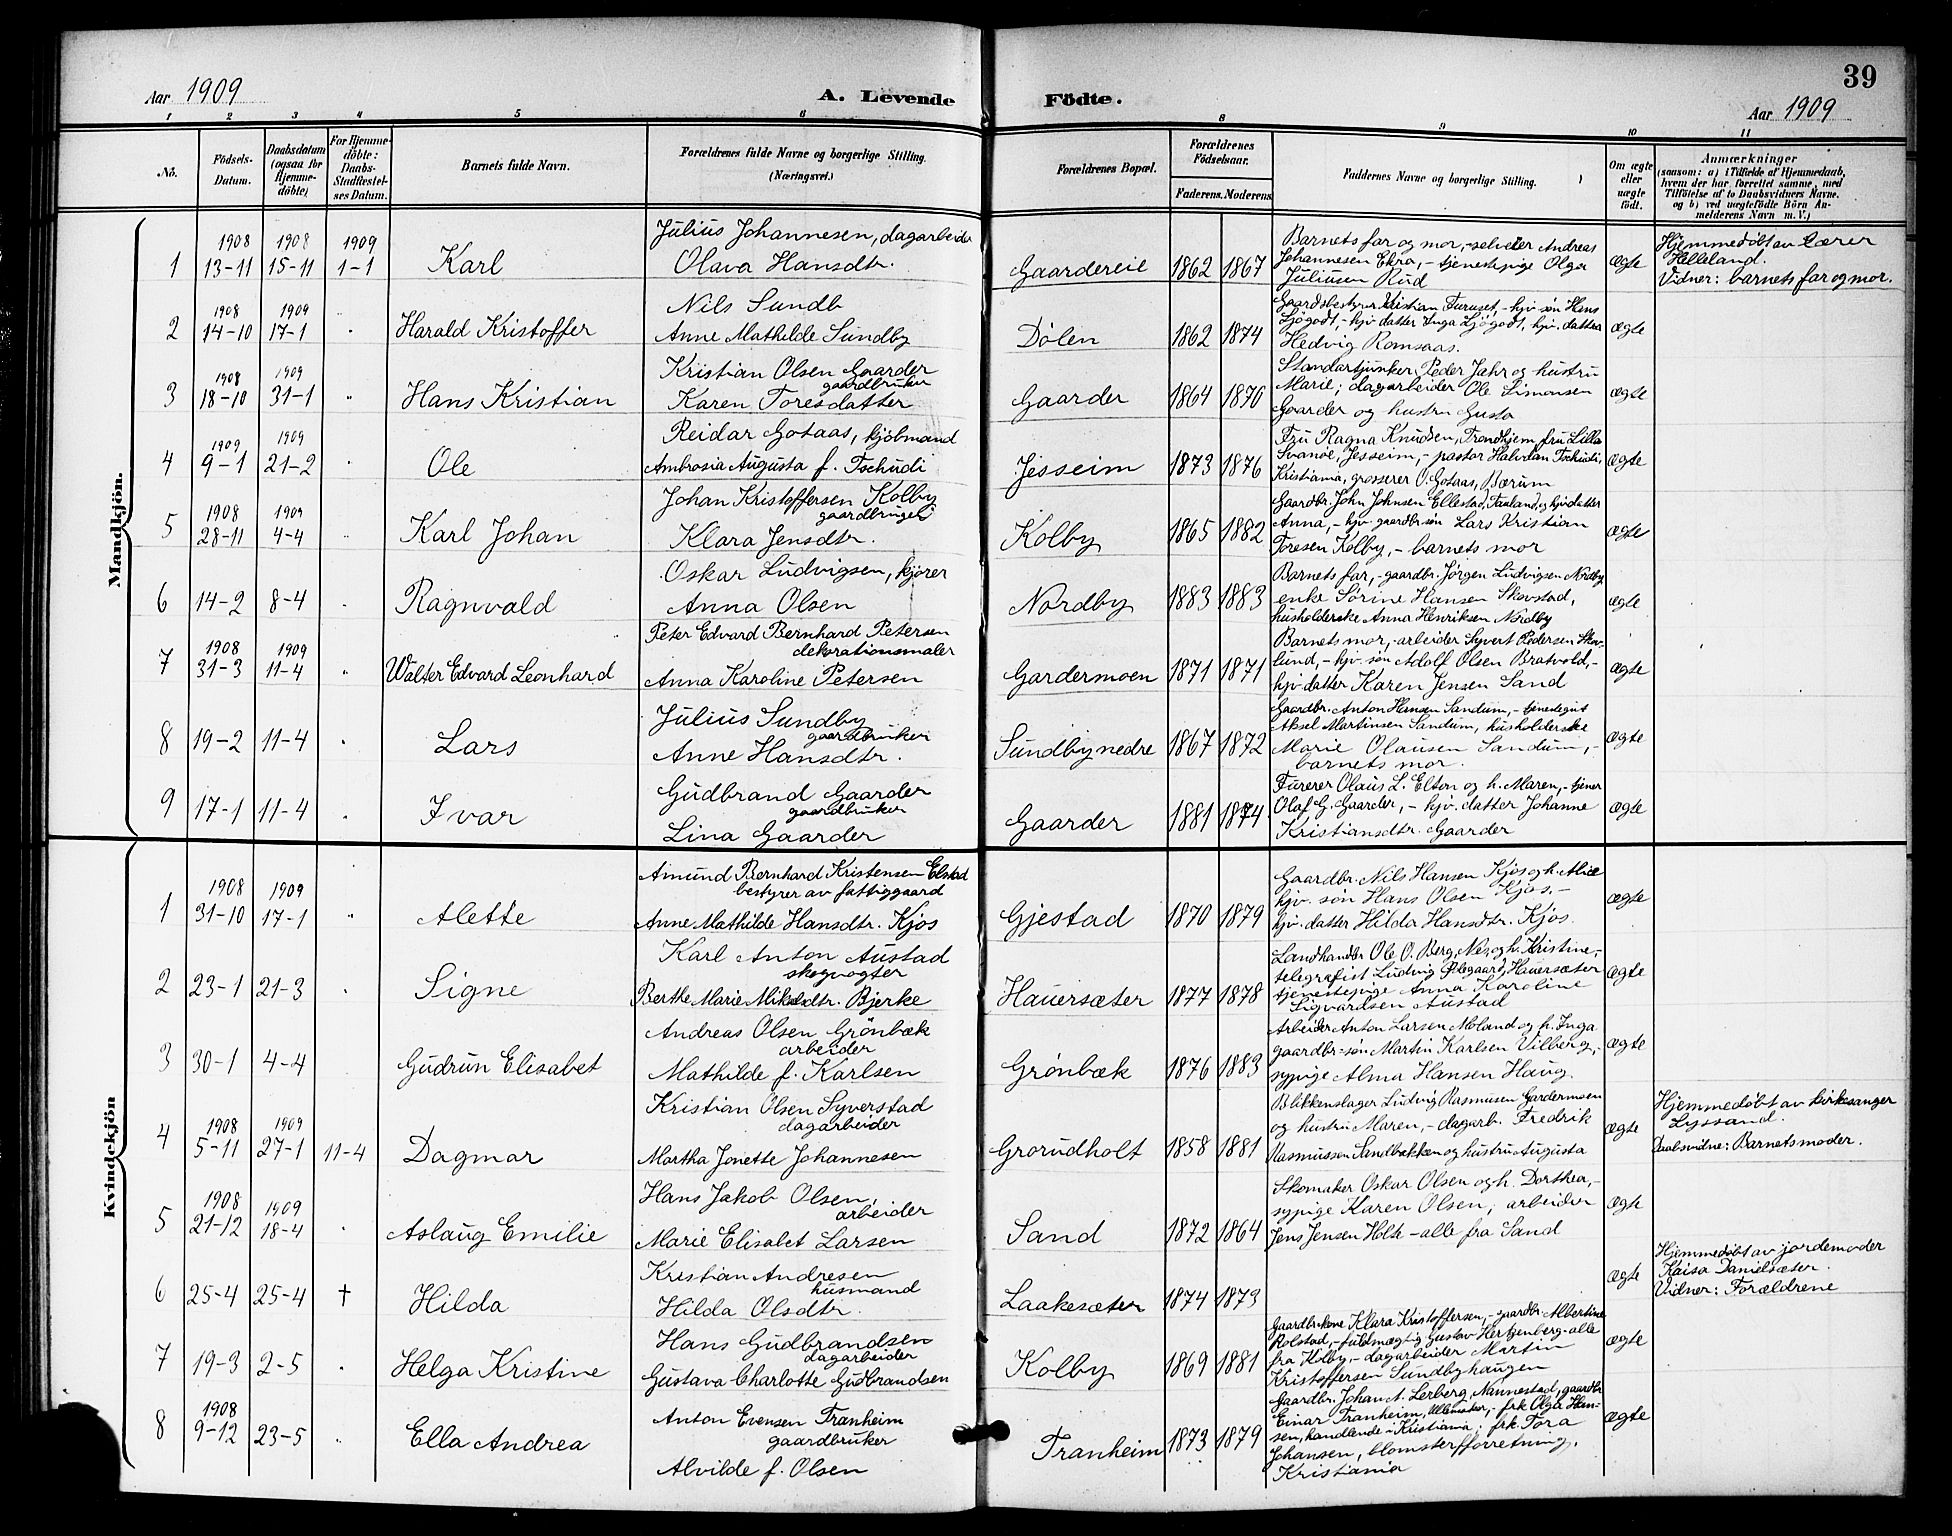 39
Aar 1909
A. Levende Födte.
Aar 1909
1 2 3 4 5 6 8 9 10 11
No.
Födsels-Datum.
Daabsdatum (ogsaa for Hjemme-döbte)
For Hjemme-döbte: Daabs-Stadfæstel-ses Datum.
Barnets fulde Navn.
Forældrenes fulde Navne og borgerlige Stilling. (Næringsvei.)
Forældrenes Bopæl.
Forældrenes Födselsaar.
Faderens. Moderens.
Faddernes Navne og borgerlige Stilling.
Om ægte eller uægte født.
Anmærkninger
(saasom: a) i Tilfælde af Hjemmedaab, hvem der har forrettet samme, med Tilføielse af to Daabsvidners Navne. og b) ved uægtefödte Börn An-melderens Navn m. V.)
Mandkjön.
1 1908 13-11 1908 15-11 1909 1-1 Karl
Julius Johannesen, dagarbeider
Olava Hansdtr.
Gaardereie 1862 1867
Barnets far og mor, - selveier Andreas
Johannesen Ekra, - tjenestepige Olga
Juliusen Rud
ægte
Hjemmedøbt av Lærer
Helleland.
Vidner: barnets far og mor.
2 1908 14-10 1909 17-1 " Harald Kristoffer
Nils Sundb
Anne Mathilde Sundby
Dølen 1862 1874
Gaardsbestyrer Kristian Furuset, - hjv. søn Hans
Ljøgodt, - hjv. datter Inga Ljøgodt, hjv. datter
Hedvig Romsaas.
ægte
3 1908 18-10 1909 31-1 " Hans Kristian
Kristian Olsen Gaarder
gaardbruker
Karen Toresdatter
Gaarder 1864 1870
Standartjunker Peder Jahr og hustru
Marie; dagarbeider Ole Simonsen
Gaarder og hustru Gusta
ægte
4 1909 9-1 1909 21-2 " Ole
Reidar Gotaas, kjøbmand
Ambrosia Augusta f. Tschudi
Jesseim 1873 1876
Fru Ragna Knudsen, Trondhjem, fru Lilla
Svanøe, Jesseim, - pastor Halvdan Tschudi,
Kristiania, grosserer O. Gotaas, Bærum
ægte
5 1908 28-11 1909 4-4 " Karl Johan
Johan Kristoffersen Kolby
gaardbruger
Klara Jensdtr.
Kolby 1865 1882
Gaardbr. John Johnsen Ellestad, og hjv. datter
Anna, - hjv. gaardbr. søn Lars Kristian
Toresen Kolby, - barnets mor
ægte
6 14-2 8-4 " Ragnvald
Oskar Ludvigsen, kjører
Anna Olsen
Nordby 1883 1883
Barnets far, - gaardbr. Jørgen Ludvigsen Nordby
enke Sørine Hansen Skovstad,
husholderske Anna Henriksen Nordby
ægte
7 1908 31-3 1909 11-4 " Walter Edvard Leonhard
Peter Edvard Bernhard Petersen
dekorationsmaler
Anna Karoline Petersen
Gardermoen 1871 1871
Barnets mor, - arbeider Syvert Pedersen Skov-
lund, - hjv. søn Adolf Olsen Bratvold, -
hjv. datter Karen Jensen Sand
ægte
8 19-2 11-4 " Lars
Julius Sundby
gaardbruker
Anne Hansdtr.
Sundby nedre 1867 1872
Gaardbr. Anton Hansen Sandum, - tjenestegut
Aksel Martinsen Sandum, husholderske
Marie Olausen Sandum, -
barnets mor.
ægte
9 17-1 11-4 " Ivar
Gudbrand Gaarder
gaardbruker
Lina Gaarder
Gaarder 1881 1874
Furerer Olaus L. Elton og h. Maren, - tjener
Olaf G. Gaarder, - hjv. datter Johanne
Kristiansdtr. Gaarder
ægte
Kvindekjön
1 1908 31-10 1909 17-1 " Alette
Amund Bernhard Kristensen Elstad
bestyrer av fattiggaard
Anne Mathilde Hansdtr. Kjos
Gjestad 1870 1879
Gaardbr. Nils Hansen Kjos og h. Alice
hjv. søn Hans Olsen Kjos, -
hjv. datter Hilda Hansdtr. Kjos.
ægte
2 23-1 21-3 " Signe
Karl Anton Austad
skogvogter
Berthe Marie Mikaldtr. Bjerke
Hauersæter 1877 1878
Landhandler Ole O. Berg, Nes, og h. Kristine, -
telegrafist Ludvig Ølegaard, Hauersæter
tjenestepige Anna Karoline
Sigvardsen Austad
ægte
3 30-1 4-4 Gudrun Elisabet
Andreas Olsen Grönbæk
arbeider
Mathilde f. Karlsen
Grønbæk 1876 1883
Arbeider Anton Larsen Moland og h. Inga
gaardbr-søn Martin Karlsen Vilberg, -
sypige Alma Hansen Haug.
ægte
4 1908 5-11 1909 27-1 11-4 Dagmar
Kristian Olsen Syverstad
dagarbeider
Martha Jonette Johannesen
Grorudholt 1858 1881
Blikkenslager Ludvig Rasmusen Gardermoen
og hustru Maren, - dagarb. Fredrik
Rasmussen Sandbækken og hustru Augusta
ægte
Hjemmedøbt av kirkesanger
Lyssand.
Daabsvidne: Barnets moder.
5 1908 21-12 1909 18-4 " Aslaug Emilie
Hans Jakob Olsen,
arbeider
Marie Elisabet Larsen
Sand 1872 1864
Skomaker Oskar Olsen og h. Dorthea, -
sypige Karen Olsen; arbeider
Jens Jensen Holt - alle fra Sand
ægte
6 25-4 25-4 † Hilda
Kristian Andresen
husmand
Hilda Olsdtr.
Laakesæter 1874 1873
ægte
Hjemmedøbt av jordemoder
Kaisa Danielsæter.
Vidner: Forældrene
7 19-3 2-5 " Helga Kristine
Hans Gudbrandsen
dagarbeider
Gustava Charlotte Gudbrandsen
Kolby 1869 1881
Gaardbr.kone Klara Kristoffersen, - gaardbr. Albertine
Rolstad, - fuldmægtig Gustav Hertzenberg - alle
fra Kolby, - dagarbeider Martin
Kristoffersen Sundbyhaugen
ægte
8 1908 9-12 23-5 " Ella Andrea
Anton Evensen Tranheim
gaardbruker
Alvilde f. Olsen
Tranheim 1873 1879
Gaardbr. Johan A. Lerberg, Nannestad, gaardbr
Einar Tranheim, Ullensaker, - frk. Olga Han-
sen, handlende i Kristiania; frk. Tora
Johansen, blomsterforretning,
Kristiania
ægte